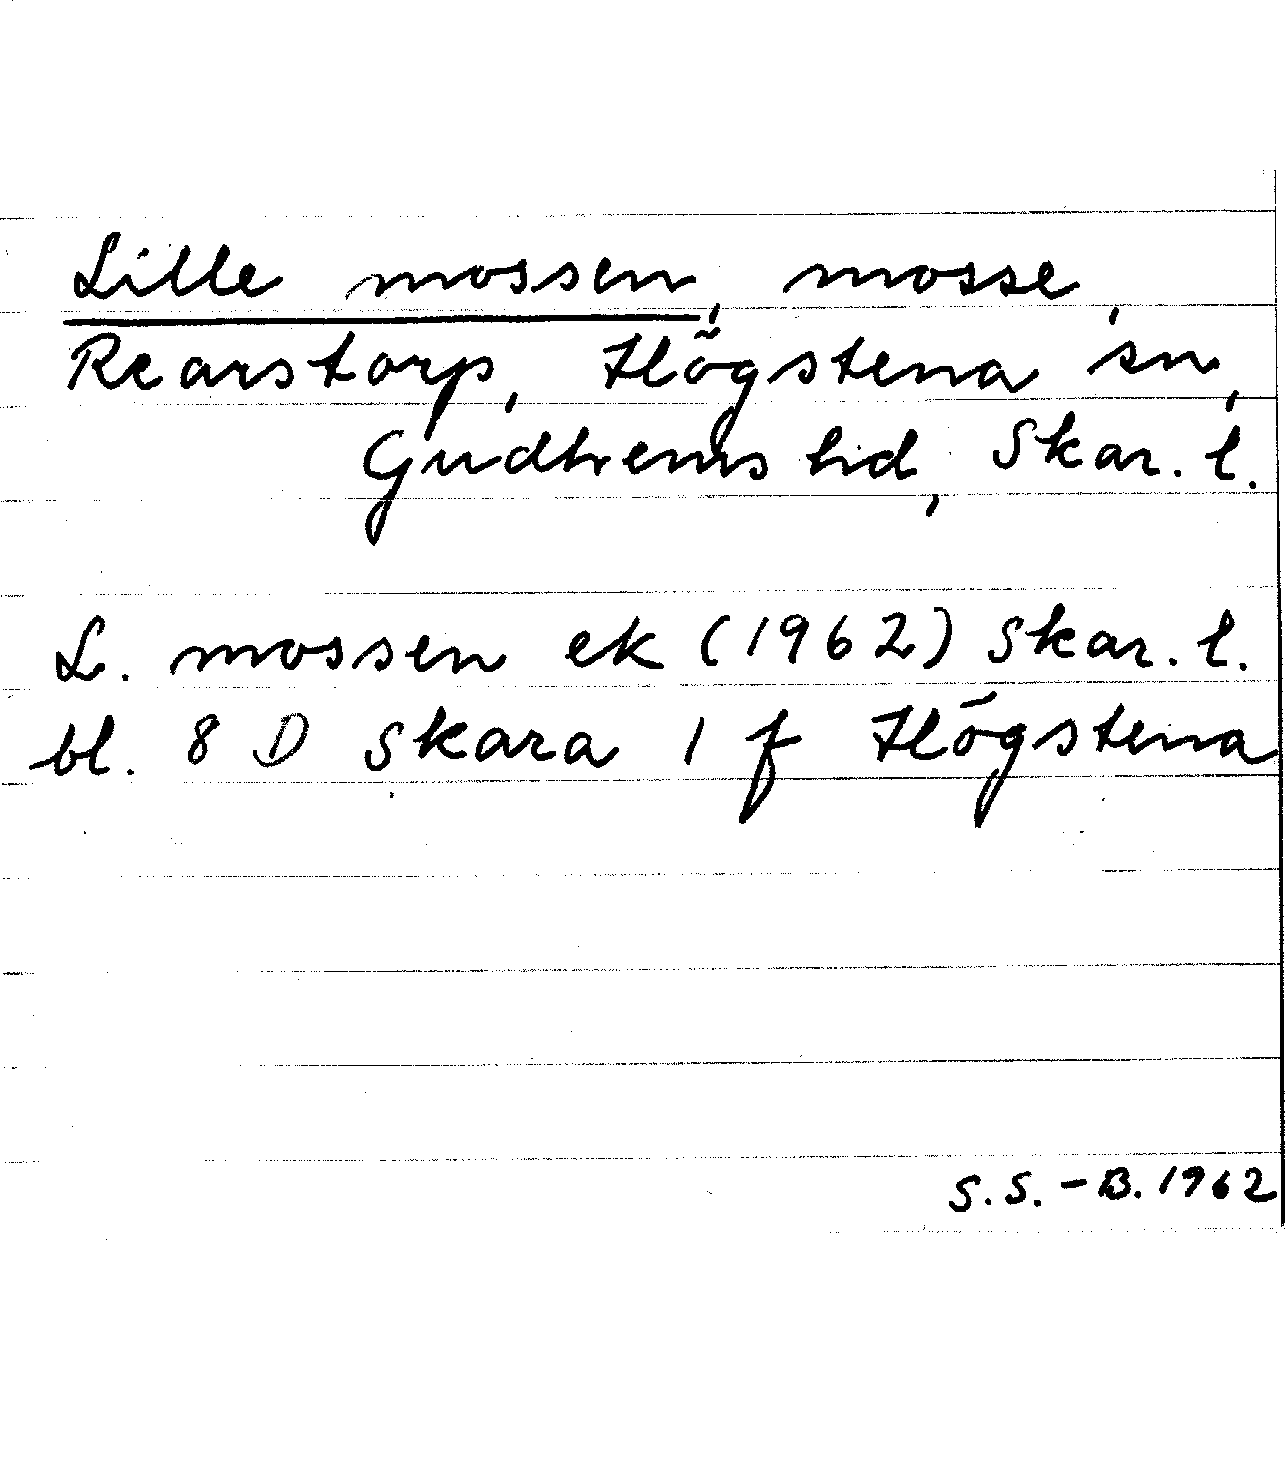 Lille mossen, mosse,
Rearstorp, Högstena sn,
Gudhems hd, Skar. l.
L. mossen ek (1962) Skar. l.
bl. 8 D Skara 1 f Högstena
S.S.-B. 1962